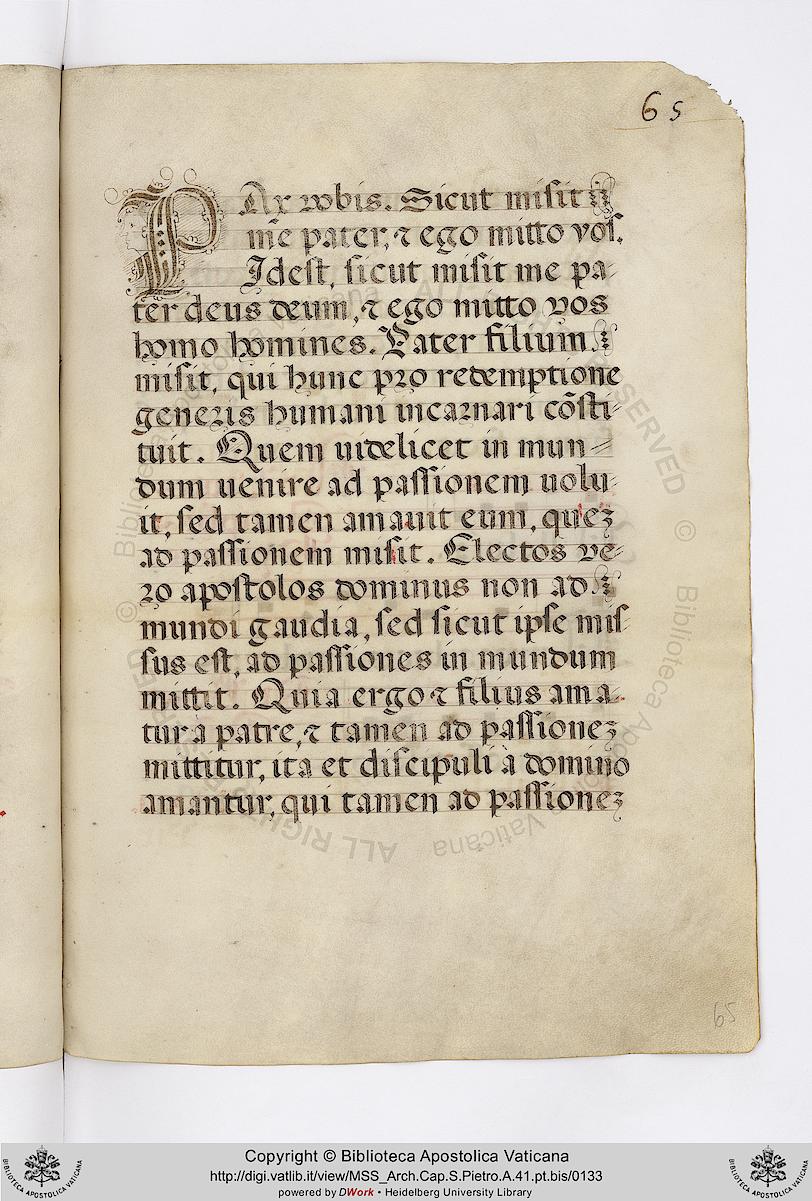 65
PAx vobis. Sicut misit
me pater, ⁊ ego mitto vos.
Idest, sicut misit me pa-
ter deus deum, ⁊ ego mitto vos
homo homines. Pater filium
misit, qui hunc pro redemptione
generis humani incarnari cõsti-
tuit. Quem uidelicet in mun=
dum uenire ad passionem uolu-
it, sed tamen amauit eum, queꝫ
ad passionem misit. Electos ve-
ro apostolos dominus non ad
mundi gaudia, sed sicut ipse mis-
sus est, ad passiones in mundum
mittit. Quia ergo ⁊ filius ama-
tur à patre, ⁊ tamen ad passioneꝫ
mittitur, ita et discipuli à domino
amantur, qui tamen ad passioneꝫ
65
Copyright © Biblioteca Apostolica Vaticana
http://digi.vatlib.it/view/MSS_Arch.Cap.S.Pietro.A.41.pt.bis/0133
powered by DWork • Heidelberg University Library